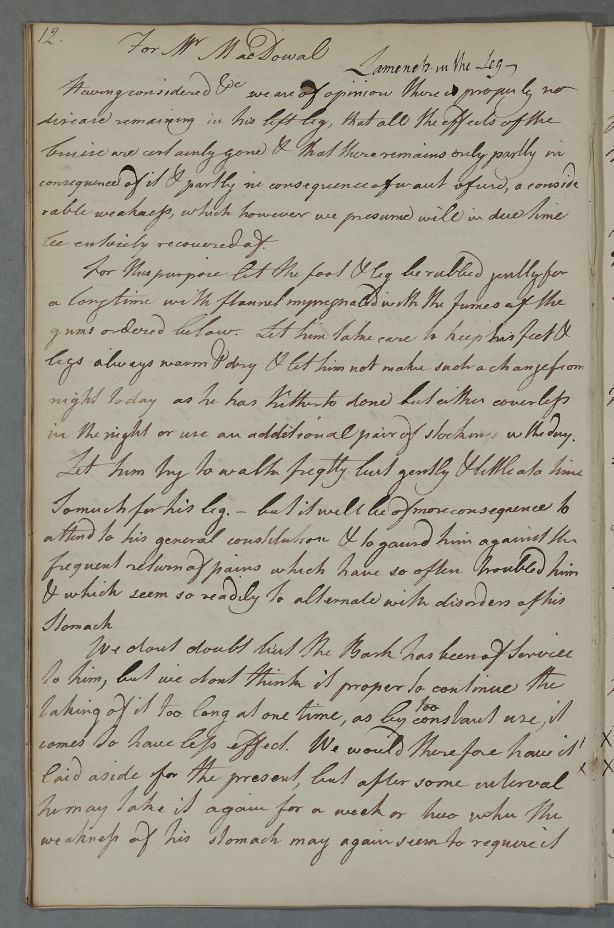 12.
For Mr MacDowal
Lameness in the Leg
Having considered &c we are of opinion there is properly no
disease remaining in his left leg, that all the effects of the
bruise are certainly gone & that there remains only partly in
consequence of it & partly in consequence of want of use, a conside
rable weakness, which however we presume will in due time
be entirely recovered of.
For this purpose let the foot & leg be rubbed gently for
a long time with flannel impregnated with the fumes of the
gums ordered below. Let him take care to keep his feet &
legs always warm & dry & let him not make such a change from
night to day as he has hitherto done but either cover less
in the night or use an additional pair of stockings in the day.
Let him try to walk freqtly but gently & little at a time
So much for his leg. – but it will be of more consequence to
attend to his general constitution & to gaurd him against the
frequent return of pains which have so often troubled him
& which seem so readily to alternate with disorders of his
Stomach
We dont doubt but the Bark has been of Service
to him, but we dont think it proper to continue the
taking of it too long at one time, as by too constant use, it
comes to have less effect. We would therefore have it
laid aside for the present, but after some interval
he may take it again for a week or two when the
weakness of his stomach may again seem to require it